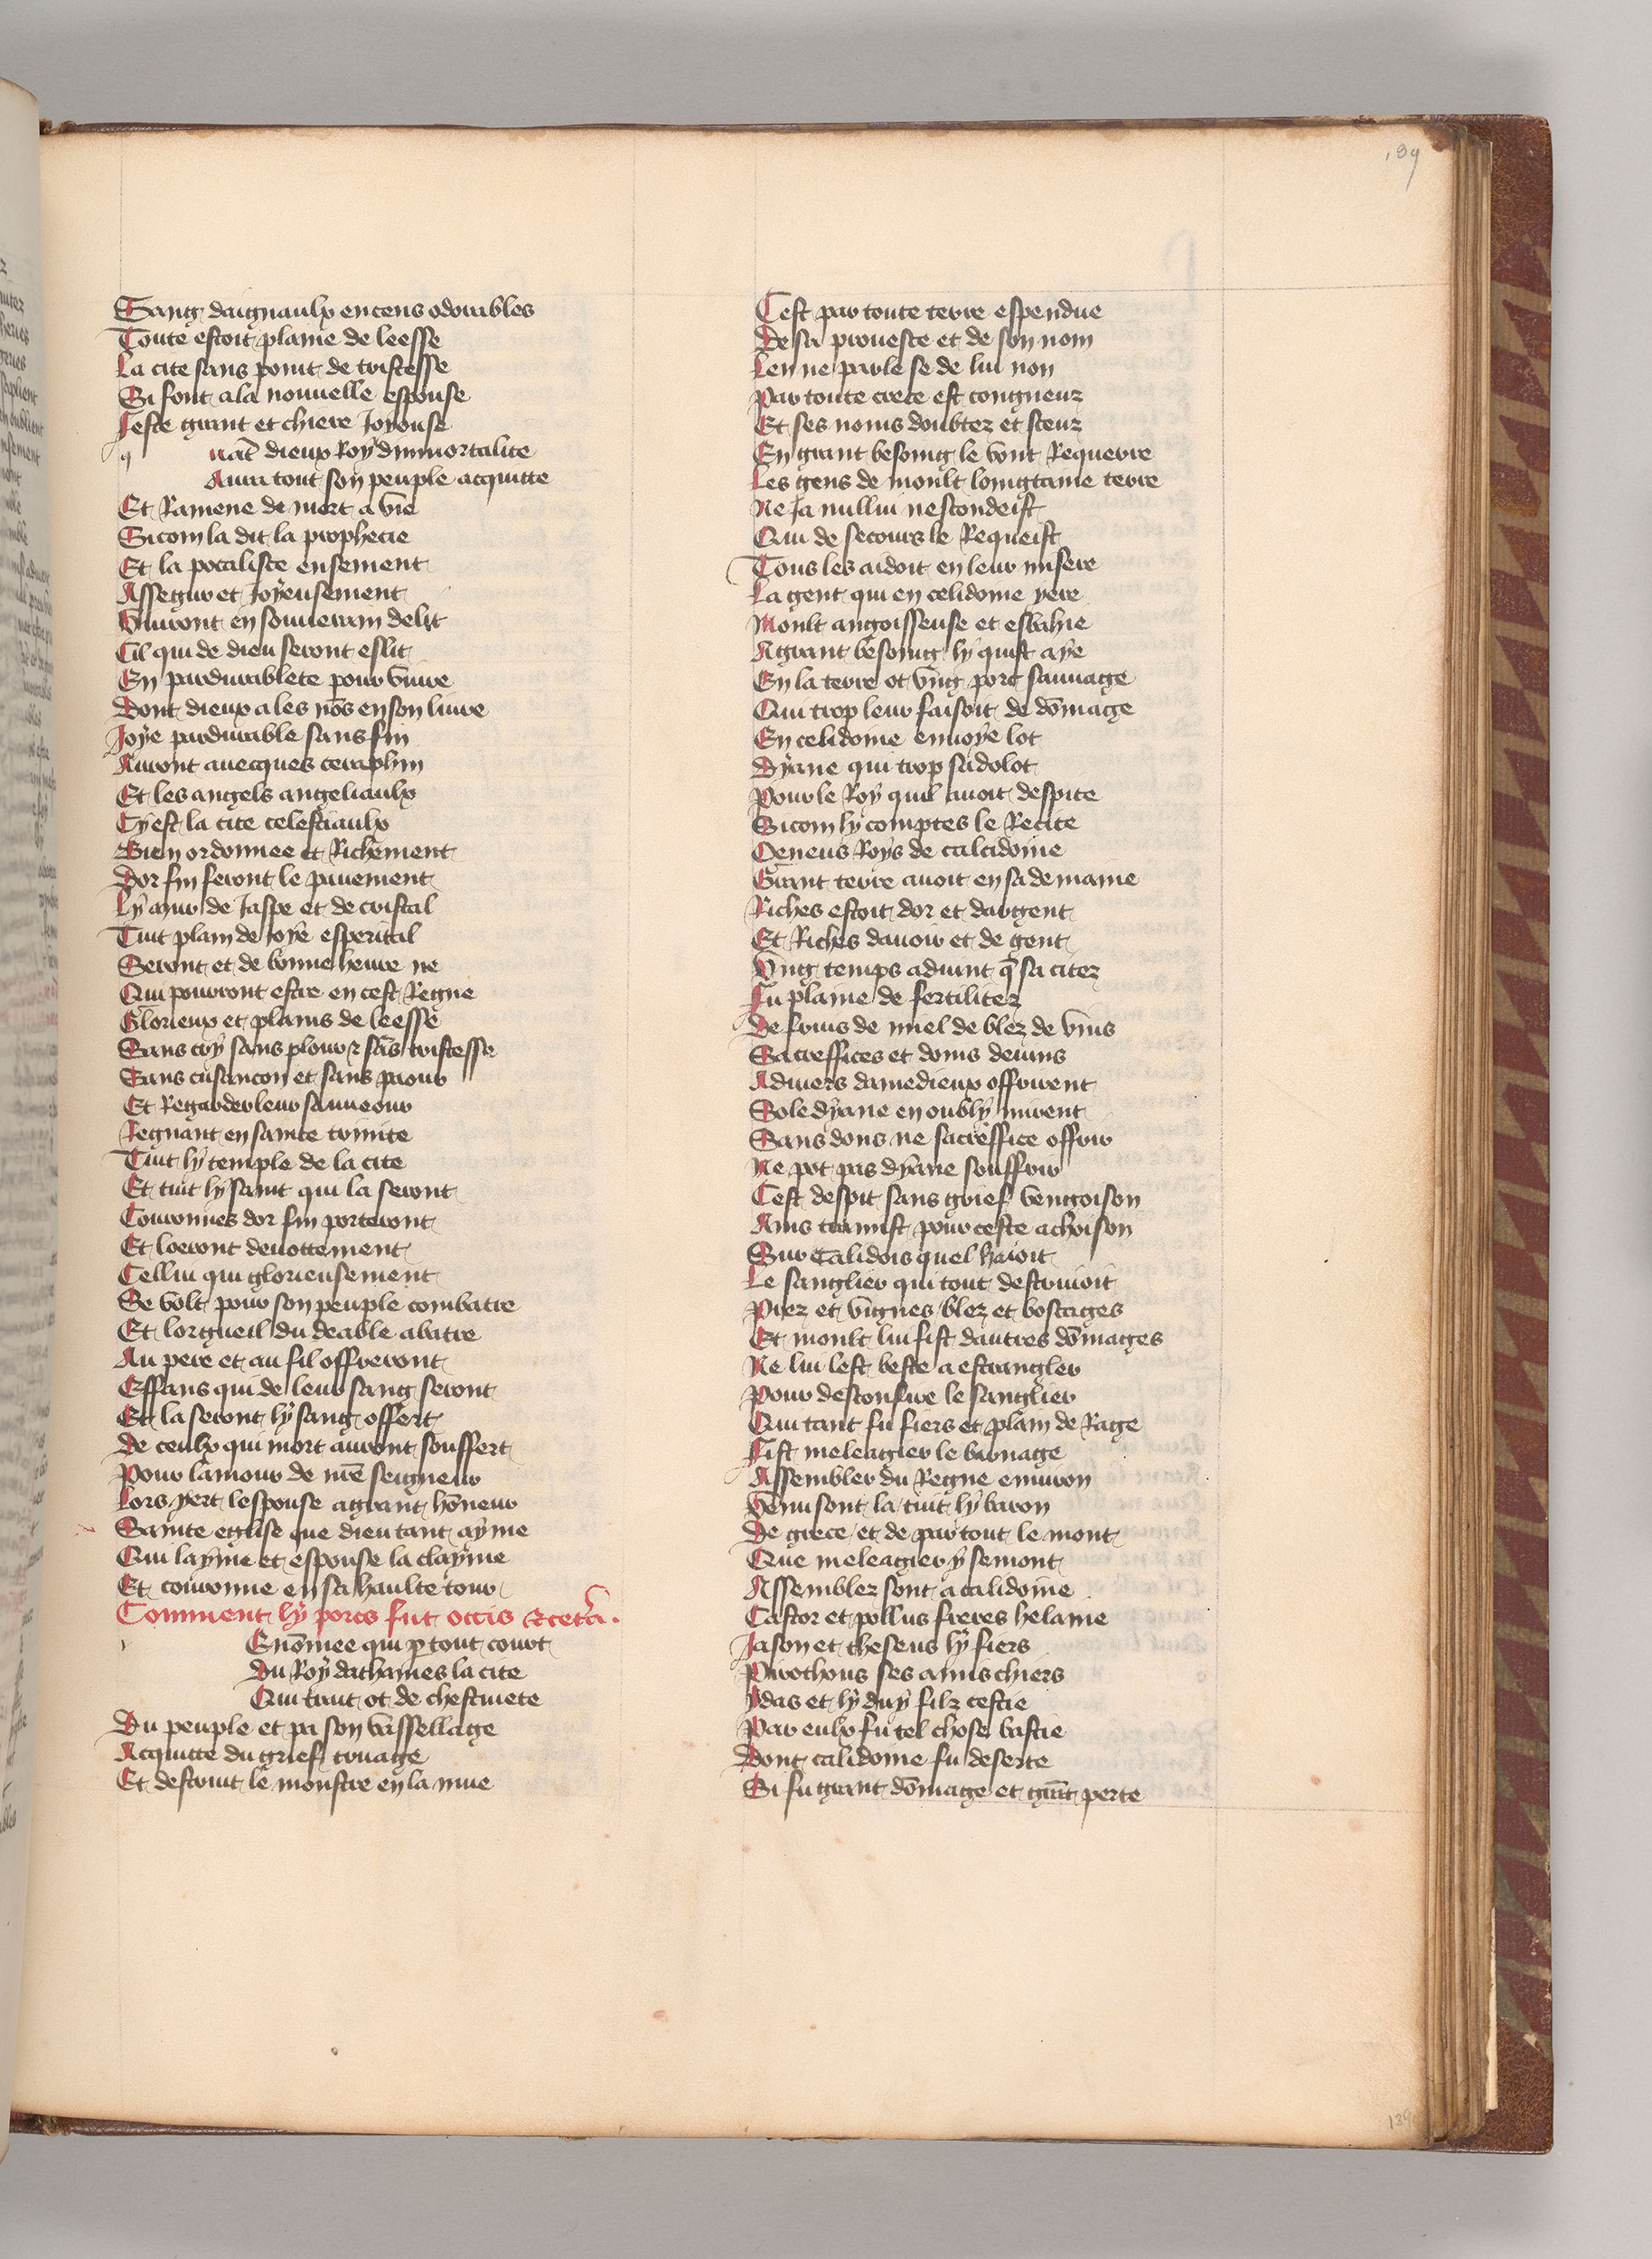 139
Sang daignaulx encens odourables
Toute estoit plaine de leesse
La cite sans point de tristesse
Si font a la nouuelle espouse
Feste grant et chiere Joyouse
q
uāt dieux Roy dimmortalite
Aura tout son peuple acquitte
Et Ramene de mort a vie
Sicom la dit la prophecie
Et la pocaliste ensement
Assegur et Joyeusement
Viuront en souuerain delit
Cil qui de dieu seront eslit
En pardurablete pour viure
Dont dieux a les nōs en son liure
Joye pardurable sans fin
Auront auecques ceraphin
Et les angels angeliaulx
Cy est la cite celestiaulx
Bien ordonnee et Richement
Dor fin seront le pauement
Ly mur de Jaspe et de cristal
Tuit plain de joye esperital
Seront et de bonne heure ne
Qui pourront estre en cest Regne
Glorieux et plains de leesse
Sans cry sans plour z sās tristesse
Sans cusancon et sans paour
Et Regarder leur sauueour
Regnant en sainte trinite
Tuit ly temple de la cite
Et tuit ly saint qui la seront
Couronnes dor fin porteront
Et loeront deuottement
Cellui qui glorieusement
Se volt pour son peuple combatre
Et lorgueil du deable abatre
Au pere et au fil offreront
Effans qui de leur sang seront
Et la seront ly sang offert
De ceulx qui mort auront souffert
Pour lamour de nr̄e seigneur
Lors yert lespouse a grant hōneur
Sainte eglise que dieu tant ayme
Qui layme et espouse la clayme
Et couronne en sa haulte tour
Comment ly porcs fut occis zcetā.
r
Enōmee qui p tout court
Du Roy dathaines la cite
Qui tant ot de chestiuete
Du peuple et pa son vassellage
Acquitte du grief truage
Et destruit le monstre en la mue
Cest par toute terre espendue
De sa proueste et de son nom
Len ne parle se de lui non
Par toute crece est congneuz
Et ses noms doubtez et sceuz
En grant besoing le vont Requerre
Les gens de moult loingtaine terre
Ne Ja nullui nescondeist
Qui de secours le Requeist
Tous les aidoit en leur misere
La gent qui en celidoine yere
Moult angoisseuse et esbahie
A grant besoing ly quist aye
En la terre ot vng porc sauuage
Qui trop leur faisoit de dōmage
En celidoine enuoye lot
Dyane qui trop sadolot
Pour le Roy quil auoit despite
Sicom ly comptes le Recite
Oeneus Roys de calcidoine
Grant terre auoit en sa demaine
Riches estoit dor et dargent
Et Riches dauoir et de gent
Vng temps aduint q̄ sa citez
Fu plaine de fertilitez
De fruis de miel de blez de vins
Sacreffices et dons deuins
A diuers damedieux offrirent
Sole dyane en oubly mirent
Sans dons ne sacreffice offrir
Ne pot pas dyane souffrir
Cest despit sans grief vengoison
Ains tramist pour ceste achoison
Sur calidois quel haioit
Le sanglier qui tout destruioit
Prez et vignes blez et boscages
Et moult lui fist dautres dōmages
Ne lui lest beste a estrangler
Pour desconfire le sanglier
Qui tant fu fiers et plain de Rage
Fist meleagier le barnage
Assembler du Regne enuiron
Venu sont la tuit ly baron
De grece et de par tout le mont
Que meleagier y semont
Assemblez sont a calidoine
Castor et pollus freres helaine
Jason et theseus ly fiers
Pirothous ses amis chiers
Ydas et ly duy filz cestie
Par eulx fu tel chose bastie
Dont calidoine fu deserte
Si fu grant dōmage et grāt perte
139